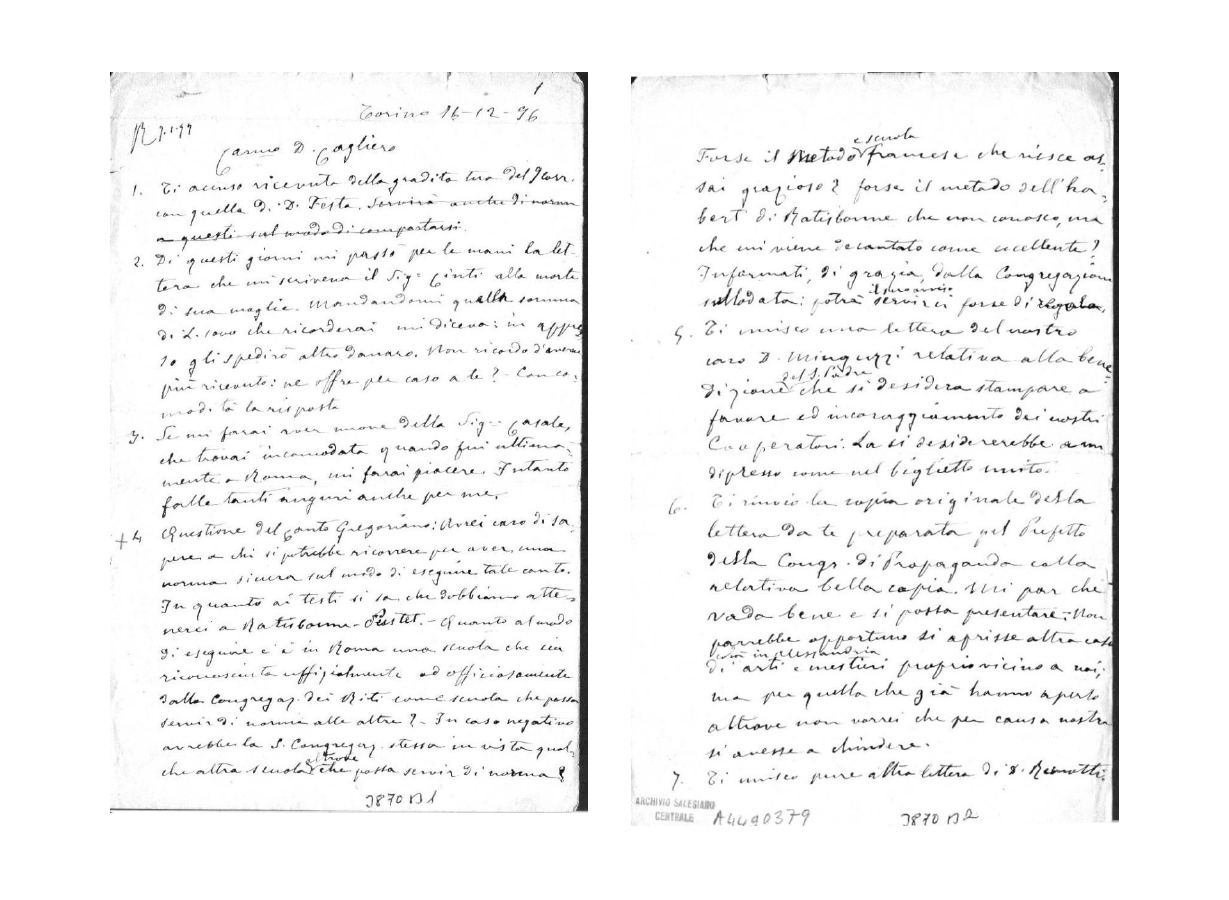 1
Torino 16-12-96
R 7.1.97
Carmo D. Cagliero
1. Ti accuso ricevuta della gradita tua del 9 corr.
con quella di D. Festa. Servirà anche di norma
a questi sul modo di comportarsi.
2. Di questi giorni mi passò per le mani la let-
tera che mi scriveva il Sig. Cinti alla morte
di sua moglie. Mandandomi quella somma
di L. che ricorderai mi diceva: in appres
so gli spedirò altro danaro. Non ricordo d'averne
più ricevuto: ne offre per caso a te? - Con co-
modità la risposta
3. Se mi farai aver nuove della Sig. Casale,
che trovai incomodata quando fui ultima-
mente a Roma, mi farai piacere. Intanto
falle tanti auguri anche per me.
+ 4 Questione del Canto Gregoriano: Avrei caro di sa-
pere a chi si potrebbe ricorrere per aver una
norma sicura sul modo di eseguire tale canto.
In quanto ai testi si sa che dobbiamo atte-
nerci a Ratisbonne-Pustet. - Quanto al modo
di eseguire c'è in Roma una scuola che sia
riconosciuta uffizialmente od officiosamente
dalla Congregaz. dei Riti come scuola che possa
servir di norma alle altre? - In caso negativo
avrebbe la S. Congregaz. stessa in vista qual-
che altra scuola altrove che possa servir di norma?
3870 B1
Forse il metodo e scuola francese che riesce as-
sai grazioso? forse il metodo dell'ha-
bert di Ratisbonne che non conosco, ma
che mi viene decantato come eccellente?
Informati, di grazia, dalla Congregazione
sullodata: potrà il suo avviso servirci forse di regola.
5. Ti unisco una lettera del nostro
caro D. Minguzzi relativa alla bene-
dizione del S. Padre che si desidera stampare a
favore ed incoraggiamento dei nostri
Cooperatori. La si desidererebbe a un
dipresso come nel biglietto unito.
6. Ti rinvio la copia originale della
lettera da te preparata pel Prefetto
della Congr. di Propaganda colla
relativa bella copia. Mi par che
vada bene e si possa presentare: Non
parrebbe opportuno si aprisse altra casa
di arti e mestieri colà in Alessandria proprio vicino a noi;
ma per quella che già hanno aperto
altrove non vorrei che per causa nostra
si avesse a chiudere.
7. Ti unisco pure altra lettera di
ARCHIVIO SALESIANO
CENTRALE
A4490379
3870 B2